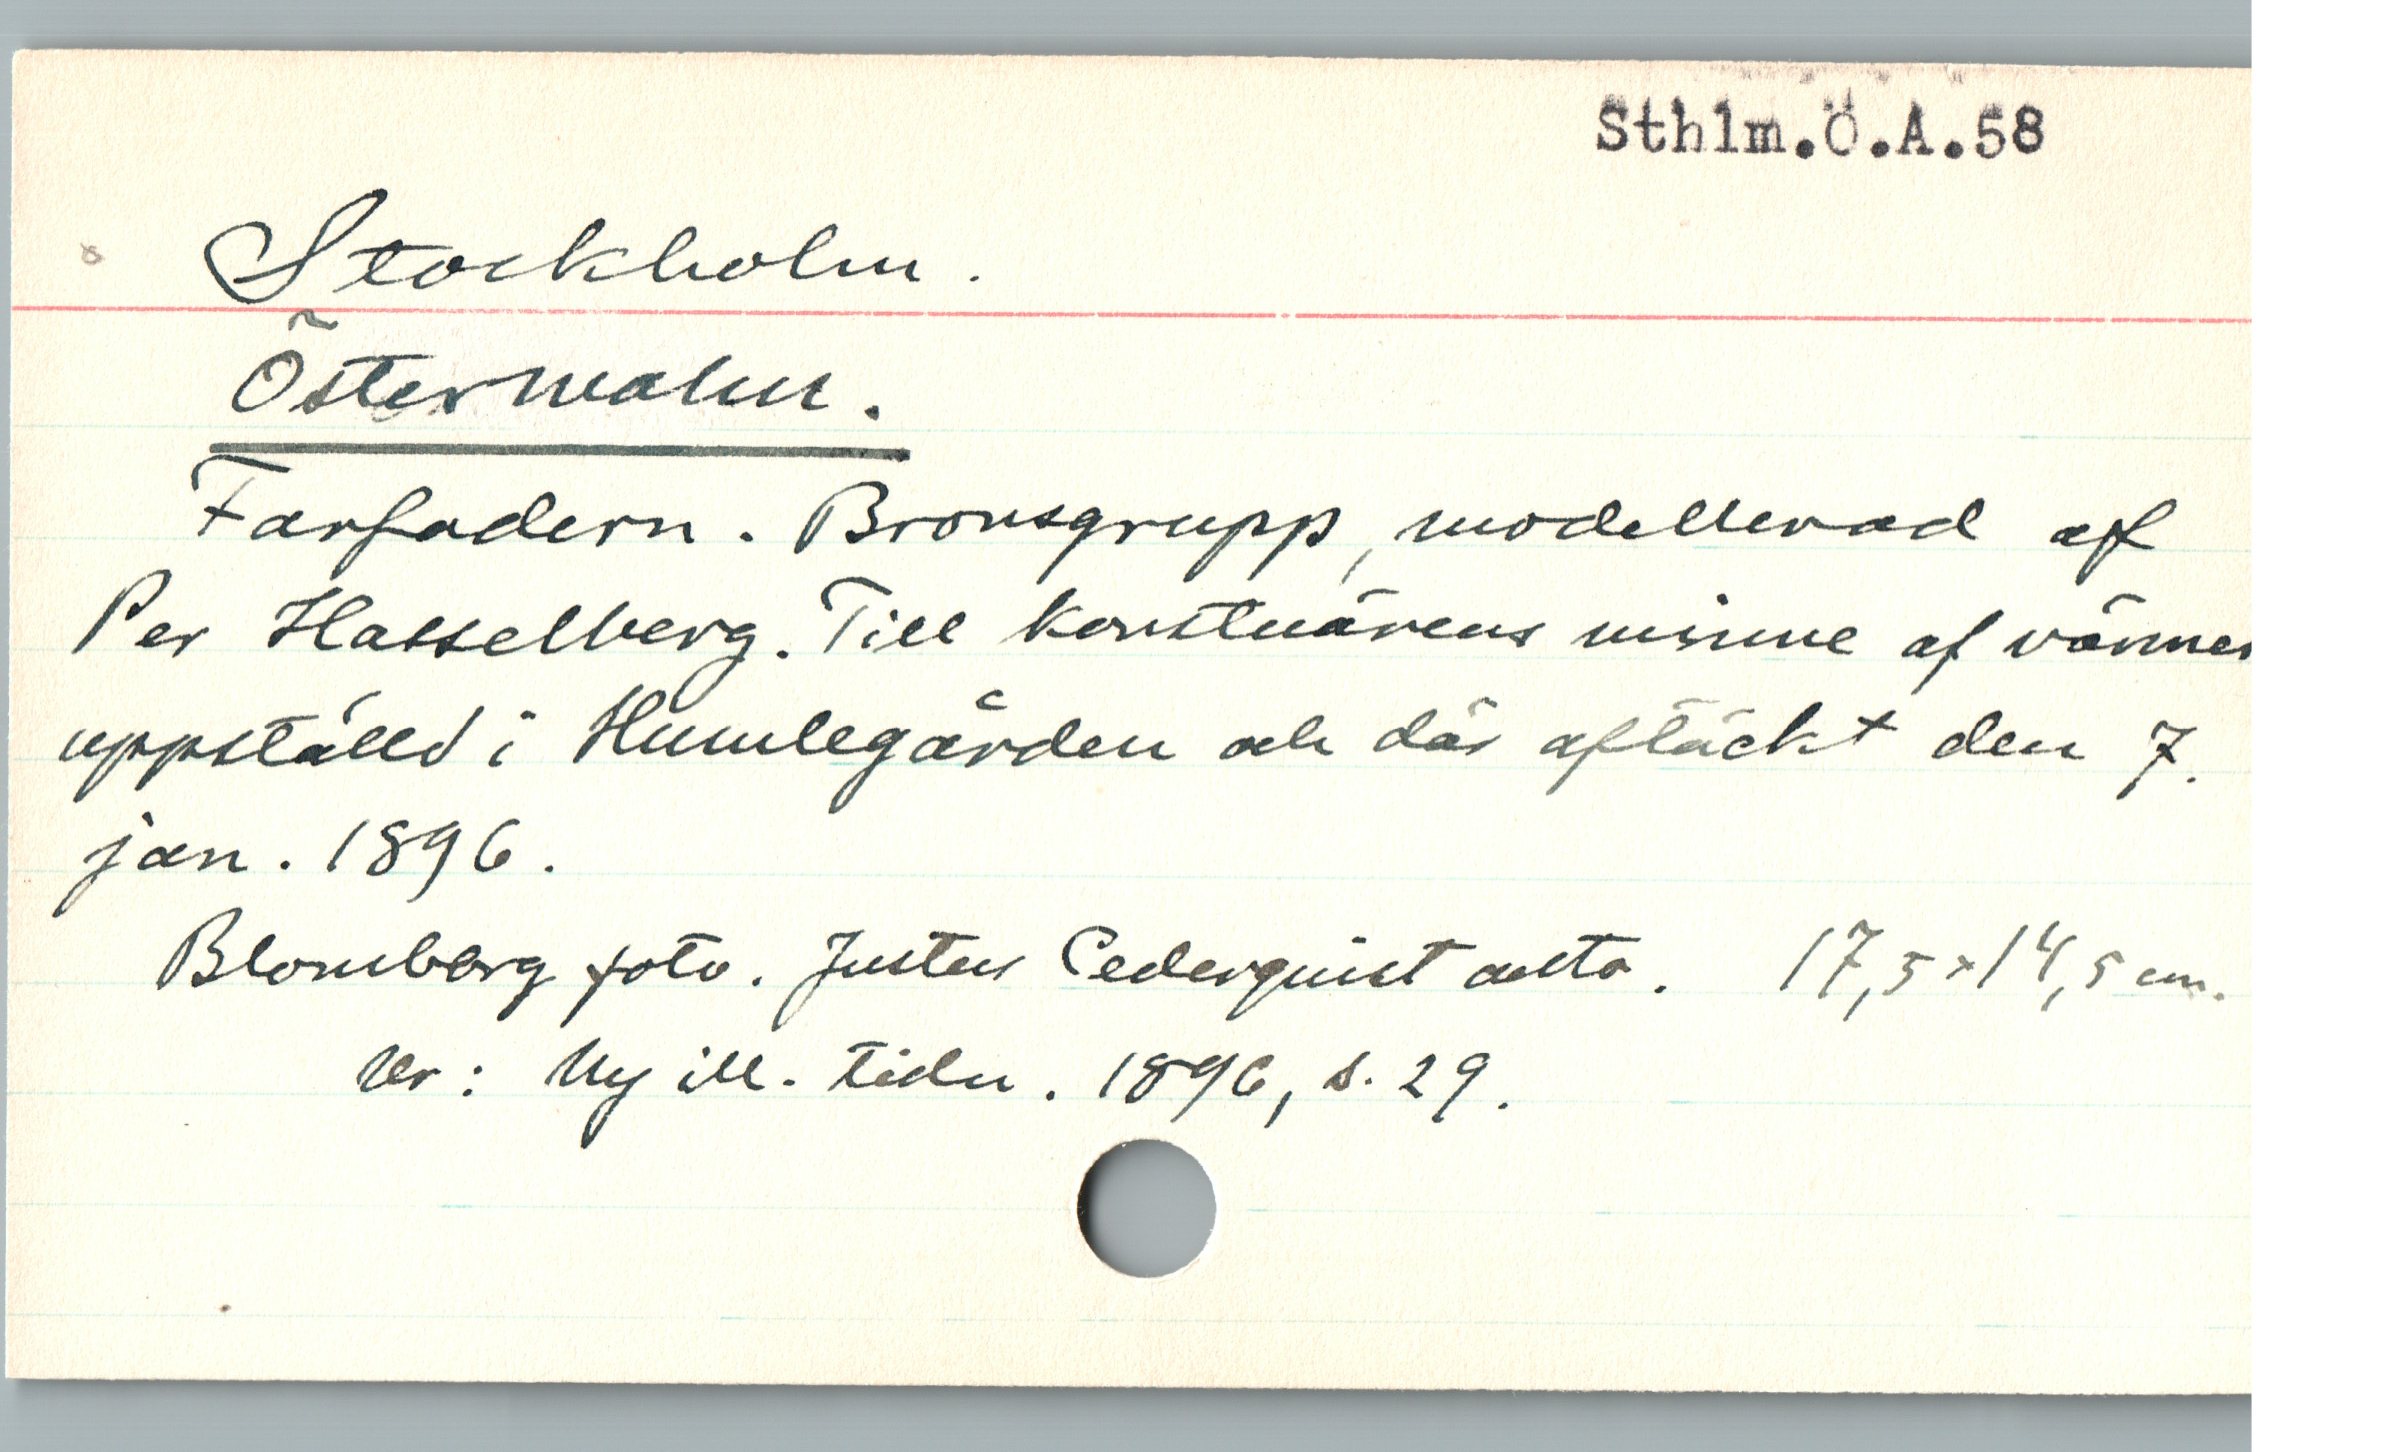 Sthlm.Ö.A.58
Stockholm.
Östermalm.
Farfadern. Bronsgrupp, modellerad af
Per Hasselberg. Till konstnärens minne af vänner
uppställd i Humlegården och där aftäckt den 7.
jan. 1896.
Blomberg foto. Justus Cederquist auto. 17,5 × 14,5 cm.
Ur: Ny ill. tidn. 1896, s. 29.